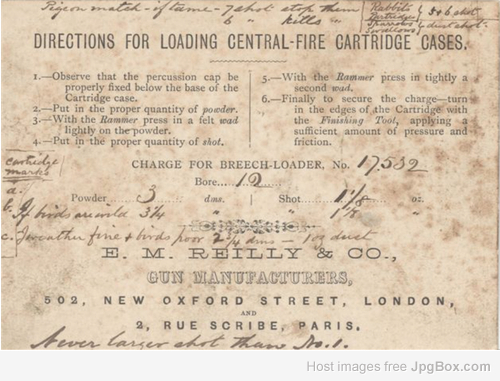 Pigeon match - if tame - 7 shot stop them
6 " kills "
Rabbits
Partridge
Sparrows
Swallows
5 & 6 shot
dust shot.
DIRECTIONS FOR LOADING CENTRAL-FIRE CARTRIDGE CASES.
1.—Observe that the percussion cap be
properly fixed below the base of the
Cartridge case.
2.—Put in the proper quantity of powder.
3.—With the Rammer press in a felt wad
lightly on the powder.
4.—Put in the proper quantity of shot.
5.—With the Rammer press in tightly a
second wad.
6.—Finally to secure the charge—turn
in the edges of the Cartridge with
the Finishing Tool, applying a
sufficient amount of pressure and
friction.
cartridge
marks
CHARGE FOR BREECH-LOADER, No. 17532
Bore 12
a.
Powder 3 dms. Shot 1 1/8 oz.
b. If birds are wild 3 1/4 " " 1 1/8 "
c. If weather fine & birds poor 2 3/4 dms - 1 oz dust
E. M. REILLY & CO.,
GUN MANUFACTURERS,
502, NEW OXFORD STREET, LONDON,
AND
2, RUE SCRIBE, PARIS.
Never larger shot than No. 1.
Host images free JpgBox.com